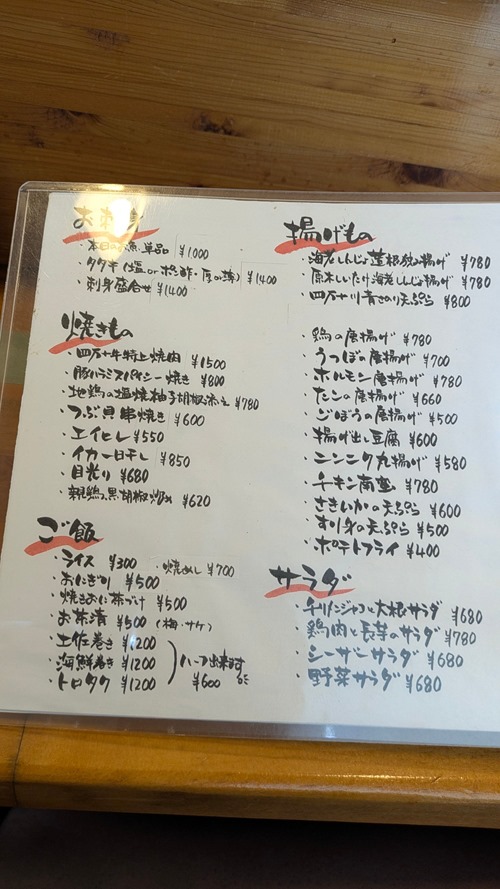 お刺身
・本日のお魚 単品 ¥1000
・タタキ（塩orポン酢・厚め薄）¥1400
・刺身盛合せ ¥1400
焼きもの
・四万十牛特上焼肉 ¥1500
・豚ハラミスパイシー焼き ¥800
・地鶏の塩焼柚子胡椒添え ¥780
・つぶ貝串焼き ¥600
・エイヒレ ¥550
・イカ一日干し ¥850
・目光り ¥680
・親鶏黒胡椒炒め ¥620
ご飯
・ライス ¥300 ・焼めし ¥700
・おにぎり ¥500
・焼きおに茶づけ ¥500
・お茶漬 ¥500（梅・サケ）
・土佐巻き ¥1200
・海鮮巻き ¥1200
・トロタク ¥1200
ハーフ出来ます
¥600
揚げもの
・海老しんじょ蓮根挟み揚げ ¥780
・原木しいたけ海老しんじょ揚げ ¥780
・四万十川青さのり天ぷら ¥800
・鶏の唐揚げ ¥780
・うつぼの唐揚げ ¥700
・ホルモン唐揚げ ¥780
・たこの唐揚げ ¥660
・ごぼうの唐揚げ ¥500
・揚げ出し豆腐 ¥600
・ニンニク丸揚げ ¥580
・チキン南蛮 ¥780
・さきいかの天ぷら ¥600
・すり身の天ぷら ¥500
・ポテトフライ ¥400
サラダ
・チリメンジャコと大根サラダ ¥680
・鶏肉と長芋のサラダ ¥780
・シーザーサラダ ¥680
・野菜サラダ ¥680